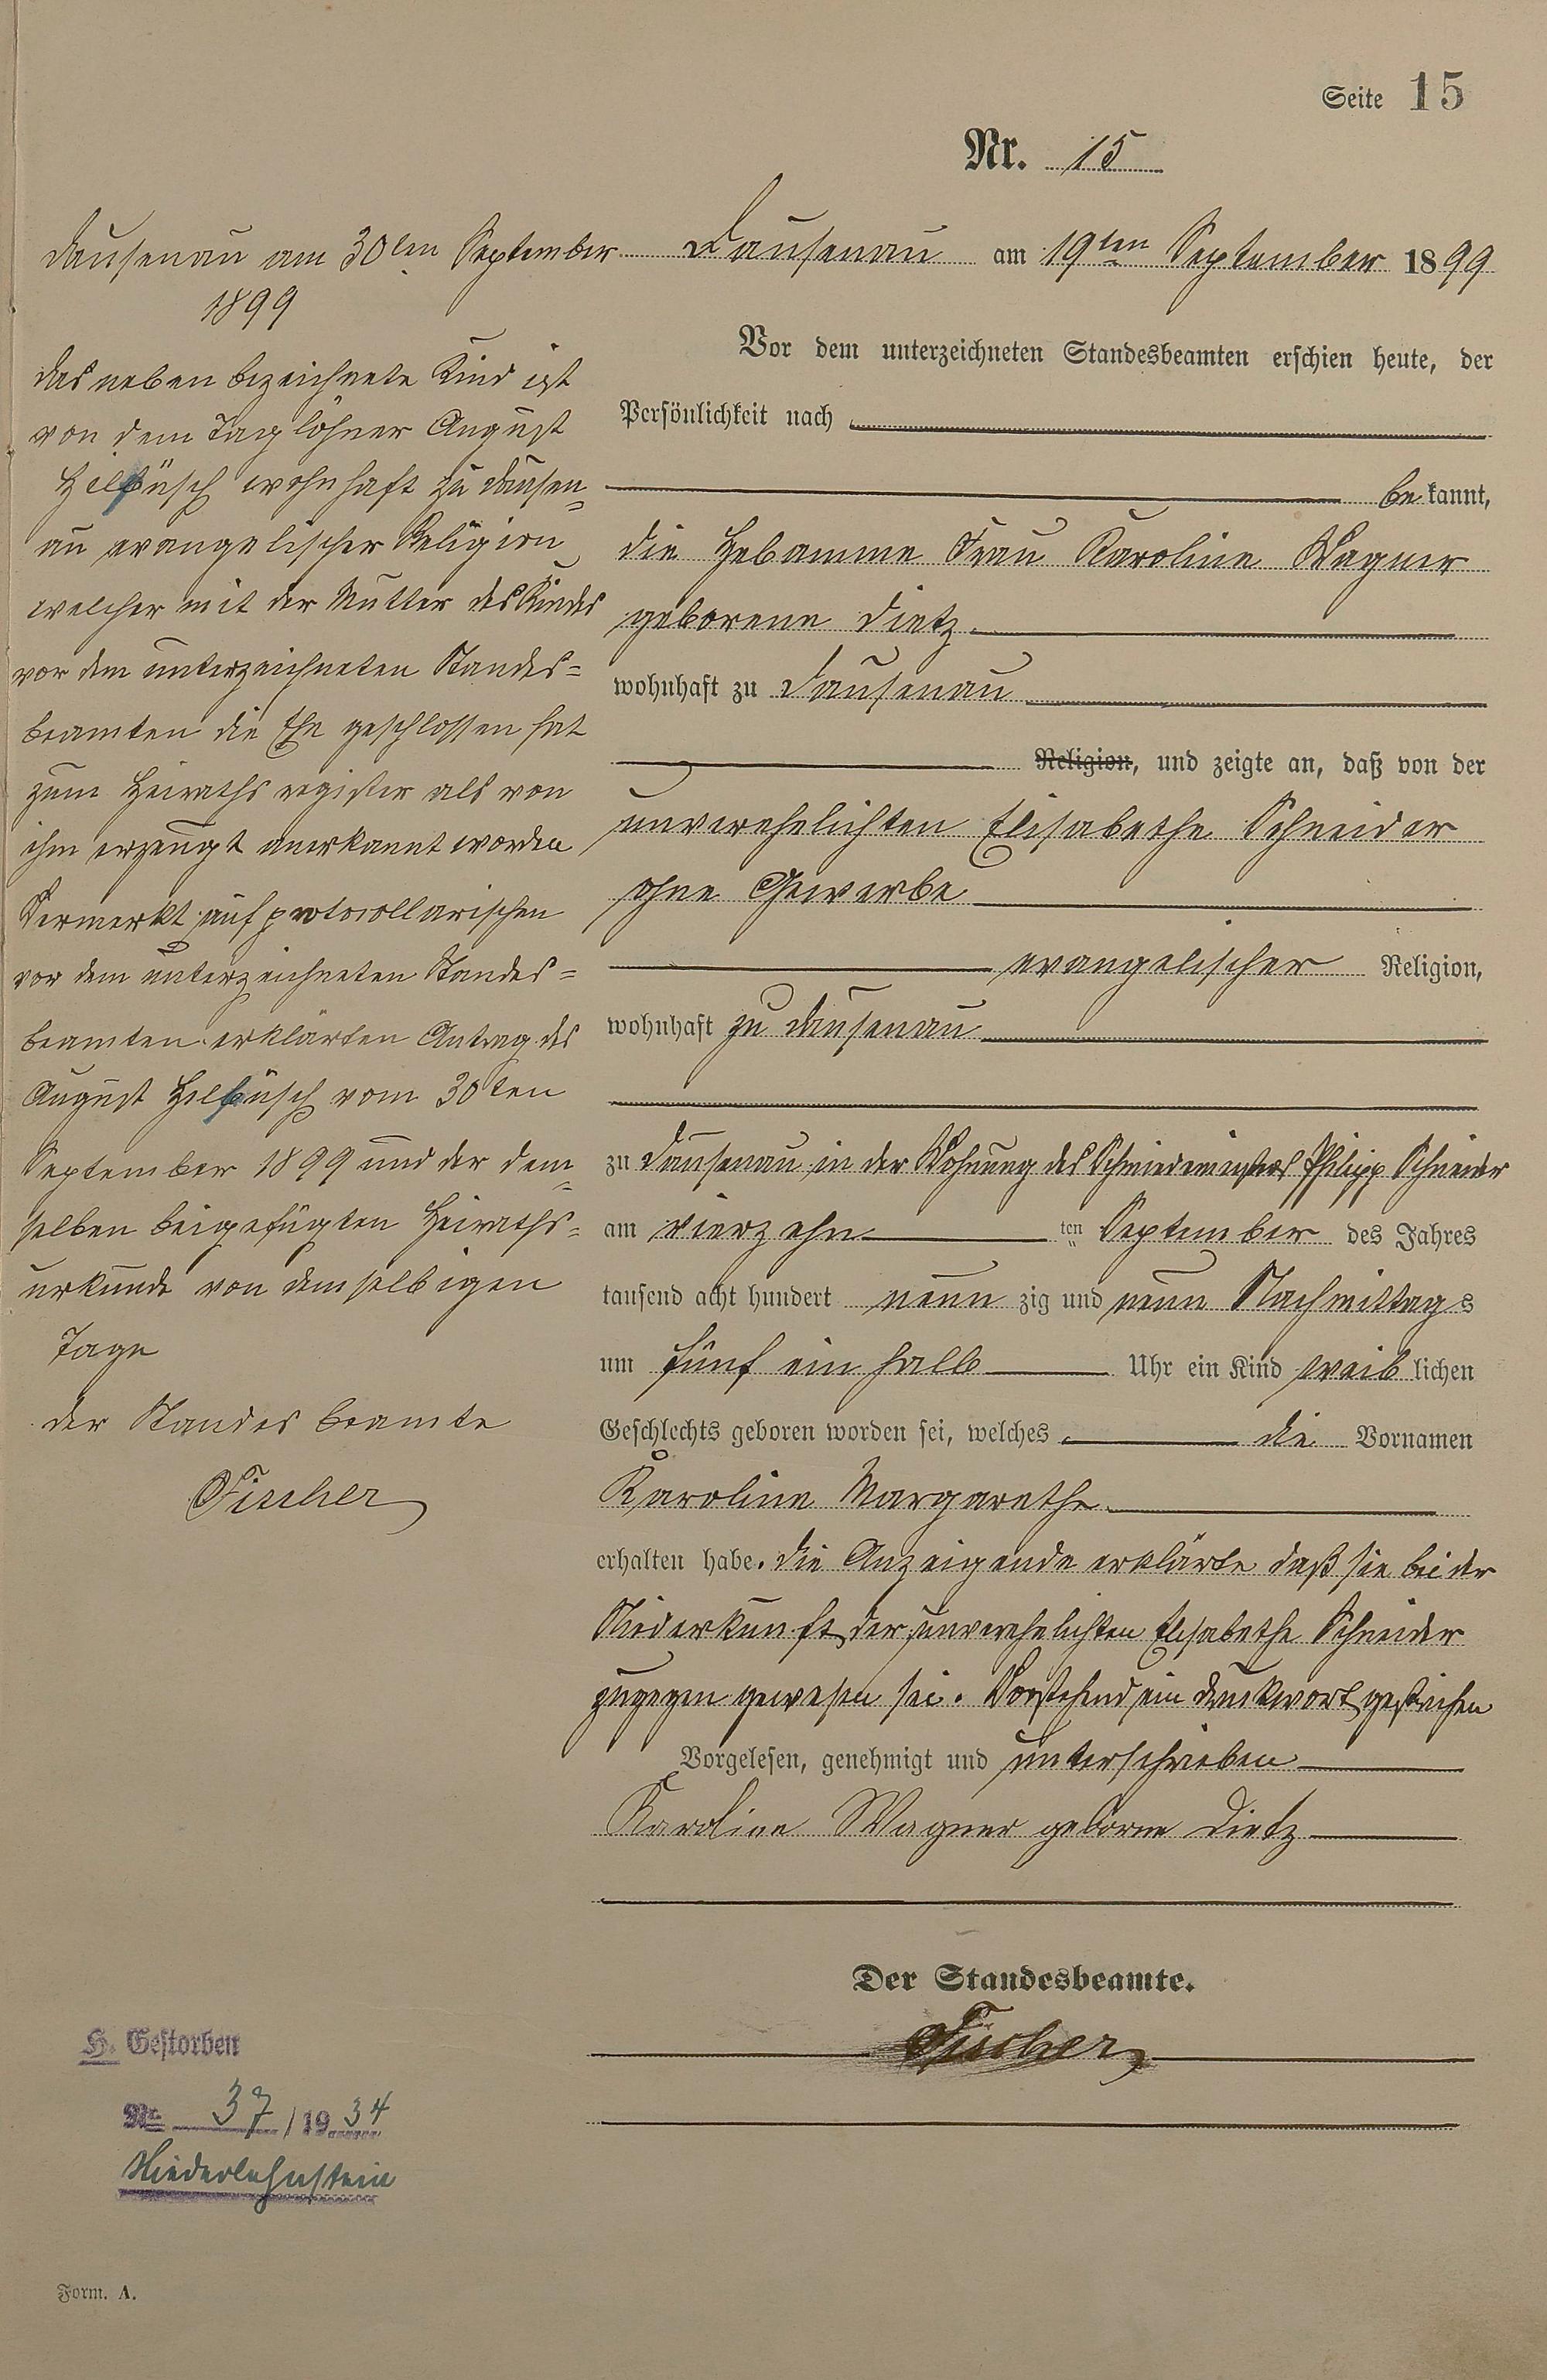 Seite 15
Nr. 15
Dausenau am 19ten September 1899
Vor dem unterzeichneten Standesbeamten erschien heute, der
Persönlichkeit nach
bekannt,
die Hebamme Frau Karoline Wagner
geborene Dietz
wohnhaft zu Dausenau
Religion, und zeigte an, daß von der
unverehelichten Elisabethe Schneider
ohne Gewerbe
evangelischer Religion,
wohnhaft zu Dausenau
zu Dausenau in der Wohnung des Schmiedemeisters Philipp Schneider
am vierzehn ten September des Jahres
tausend acht hundert neunzig und neun Nachmittags
um fünf ein halb Uhr ein Kind weiblichen
Geschlechts geboren worden sei, welches die Vornamen
Karoline Margarethe
erhalten habe. Die Anzeigende erklärte daß sie bei der
Niederkunft der unverehelichten Elisabethe Schneider
zugegen gewesen sei. Vorstehend ein Druckwort gestrichen
Vorgelesen, genehmigt und unterschrieben
Karoline Wagner geborne Dietz
Der Standesbeamte.
Fischer
Dausenau am 30ten September
1899
Das neben bezeichnete Kind ist
von dem Taglöhner August
wohnhaft zu Dausen-
au evangelischer Religion
welcher mit der Mutter des Kindes
vor dem unterzeichneten Standes-
beamten die Ehe geschlossen hat
zum Heiraths register als von
ihm erzeugt anerkannt worden
Vermerkt auf protocollarischen
vor dem unterzeichneten Standes-
beamten erklärten Antrag des
August vom 30ten
September 1899 und der dem-
selben beigefügten Heiraths-
urkunde von demselbigen
Tage
Der Standesbeamte
Fischer
H. Gestorben
Nr. 37/1934
Niederlahnstein
Form. A.